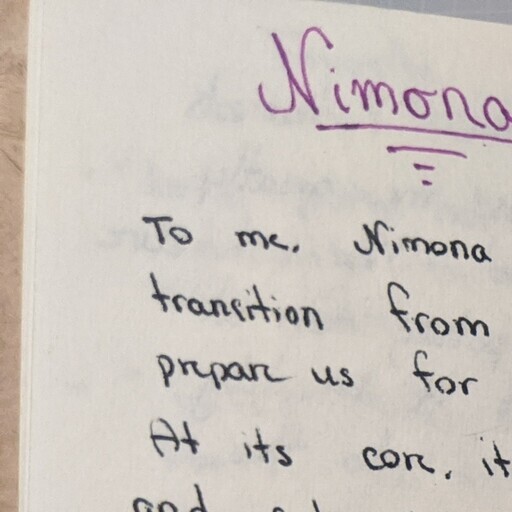 Nimona
To me, Nimona
transition from
prepare us for
At its core, it
and